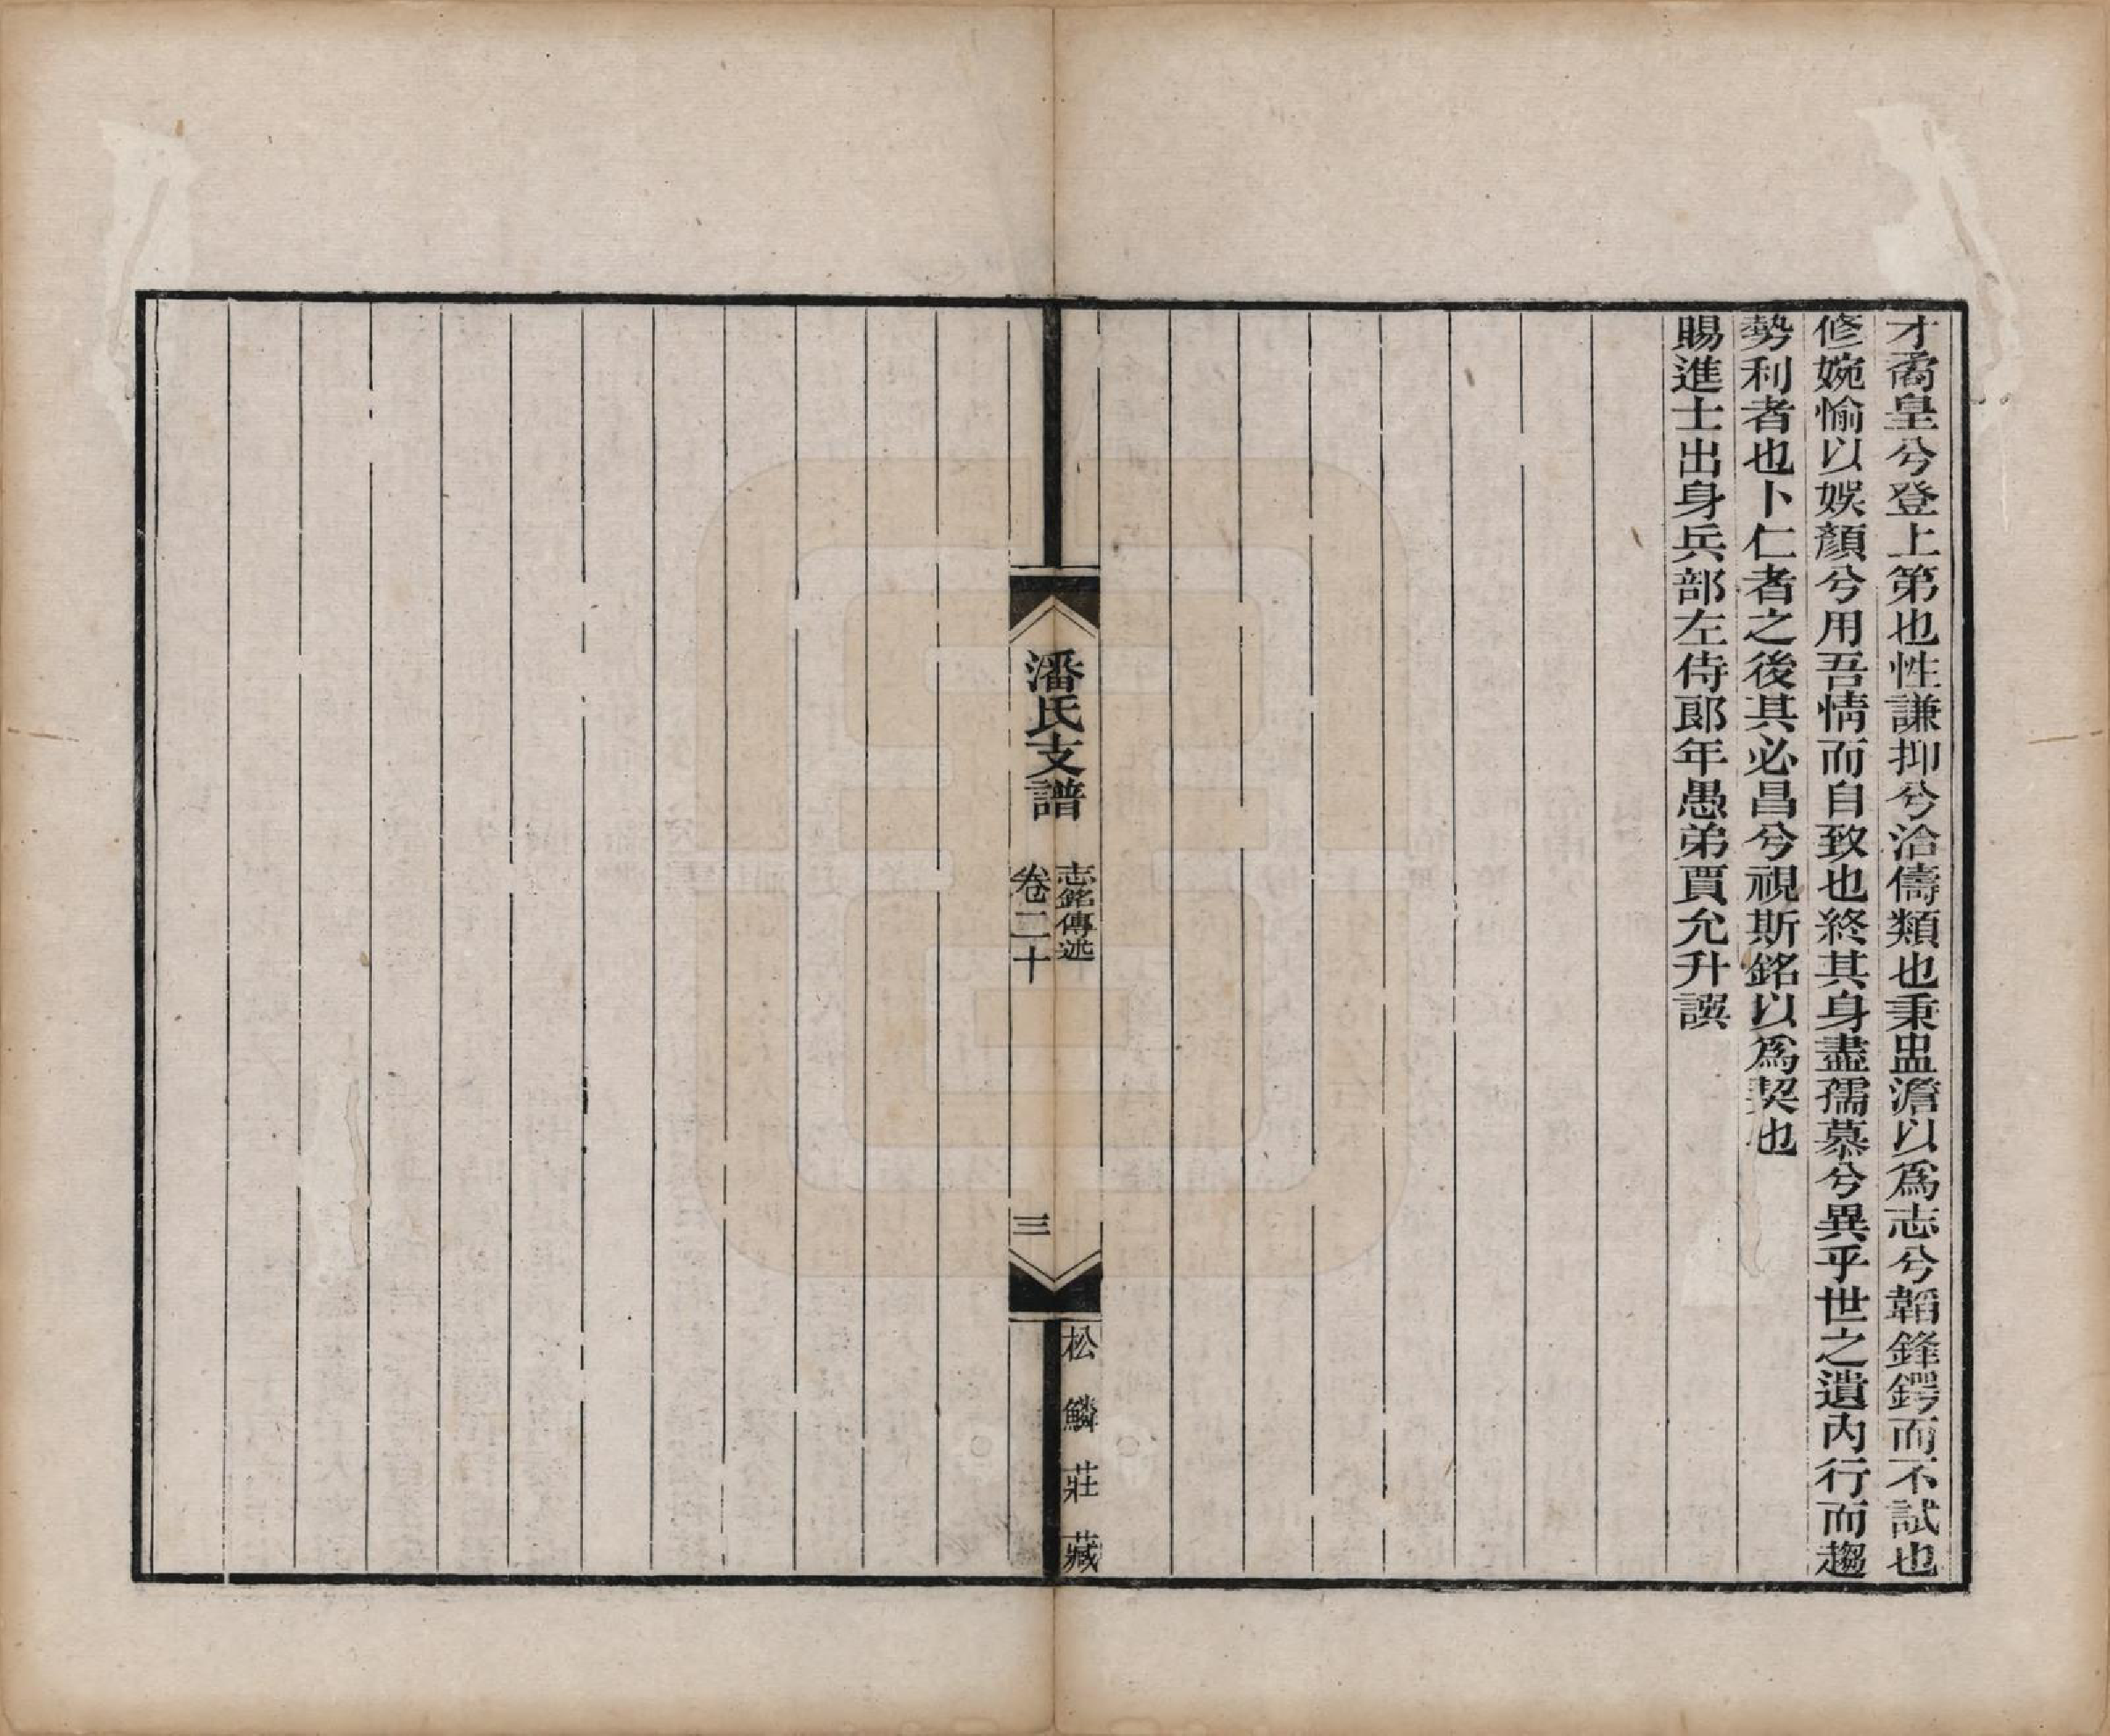 才矞皇兮登上第也性謙抑兮洽儔類也秉盅澹以爲志兮韜鋒鍔而不試也
修婉愉以娛顏兮用吾情而自致也終其身盡孺慕兮異乎世之遺內行而趨
勢利者也卜仁者之後其必昌兮視斯銘以爲契也
賜進士出身兵部左侍郎年愚弟賈允升譔
潘氏支譜
志銘傳述
卷二十
三
松鱗莊藏